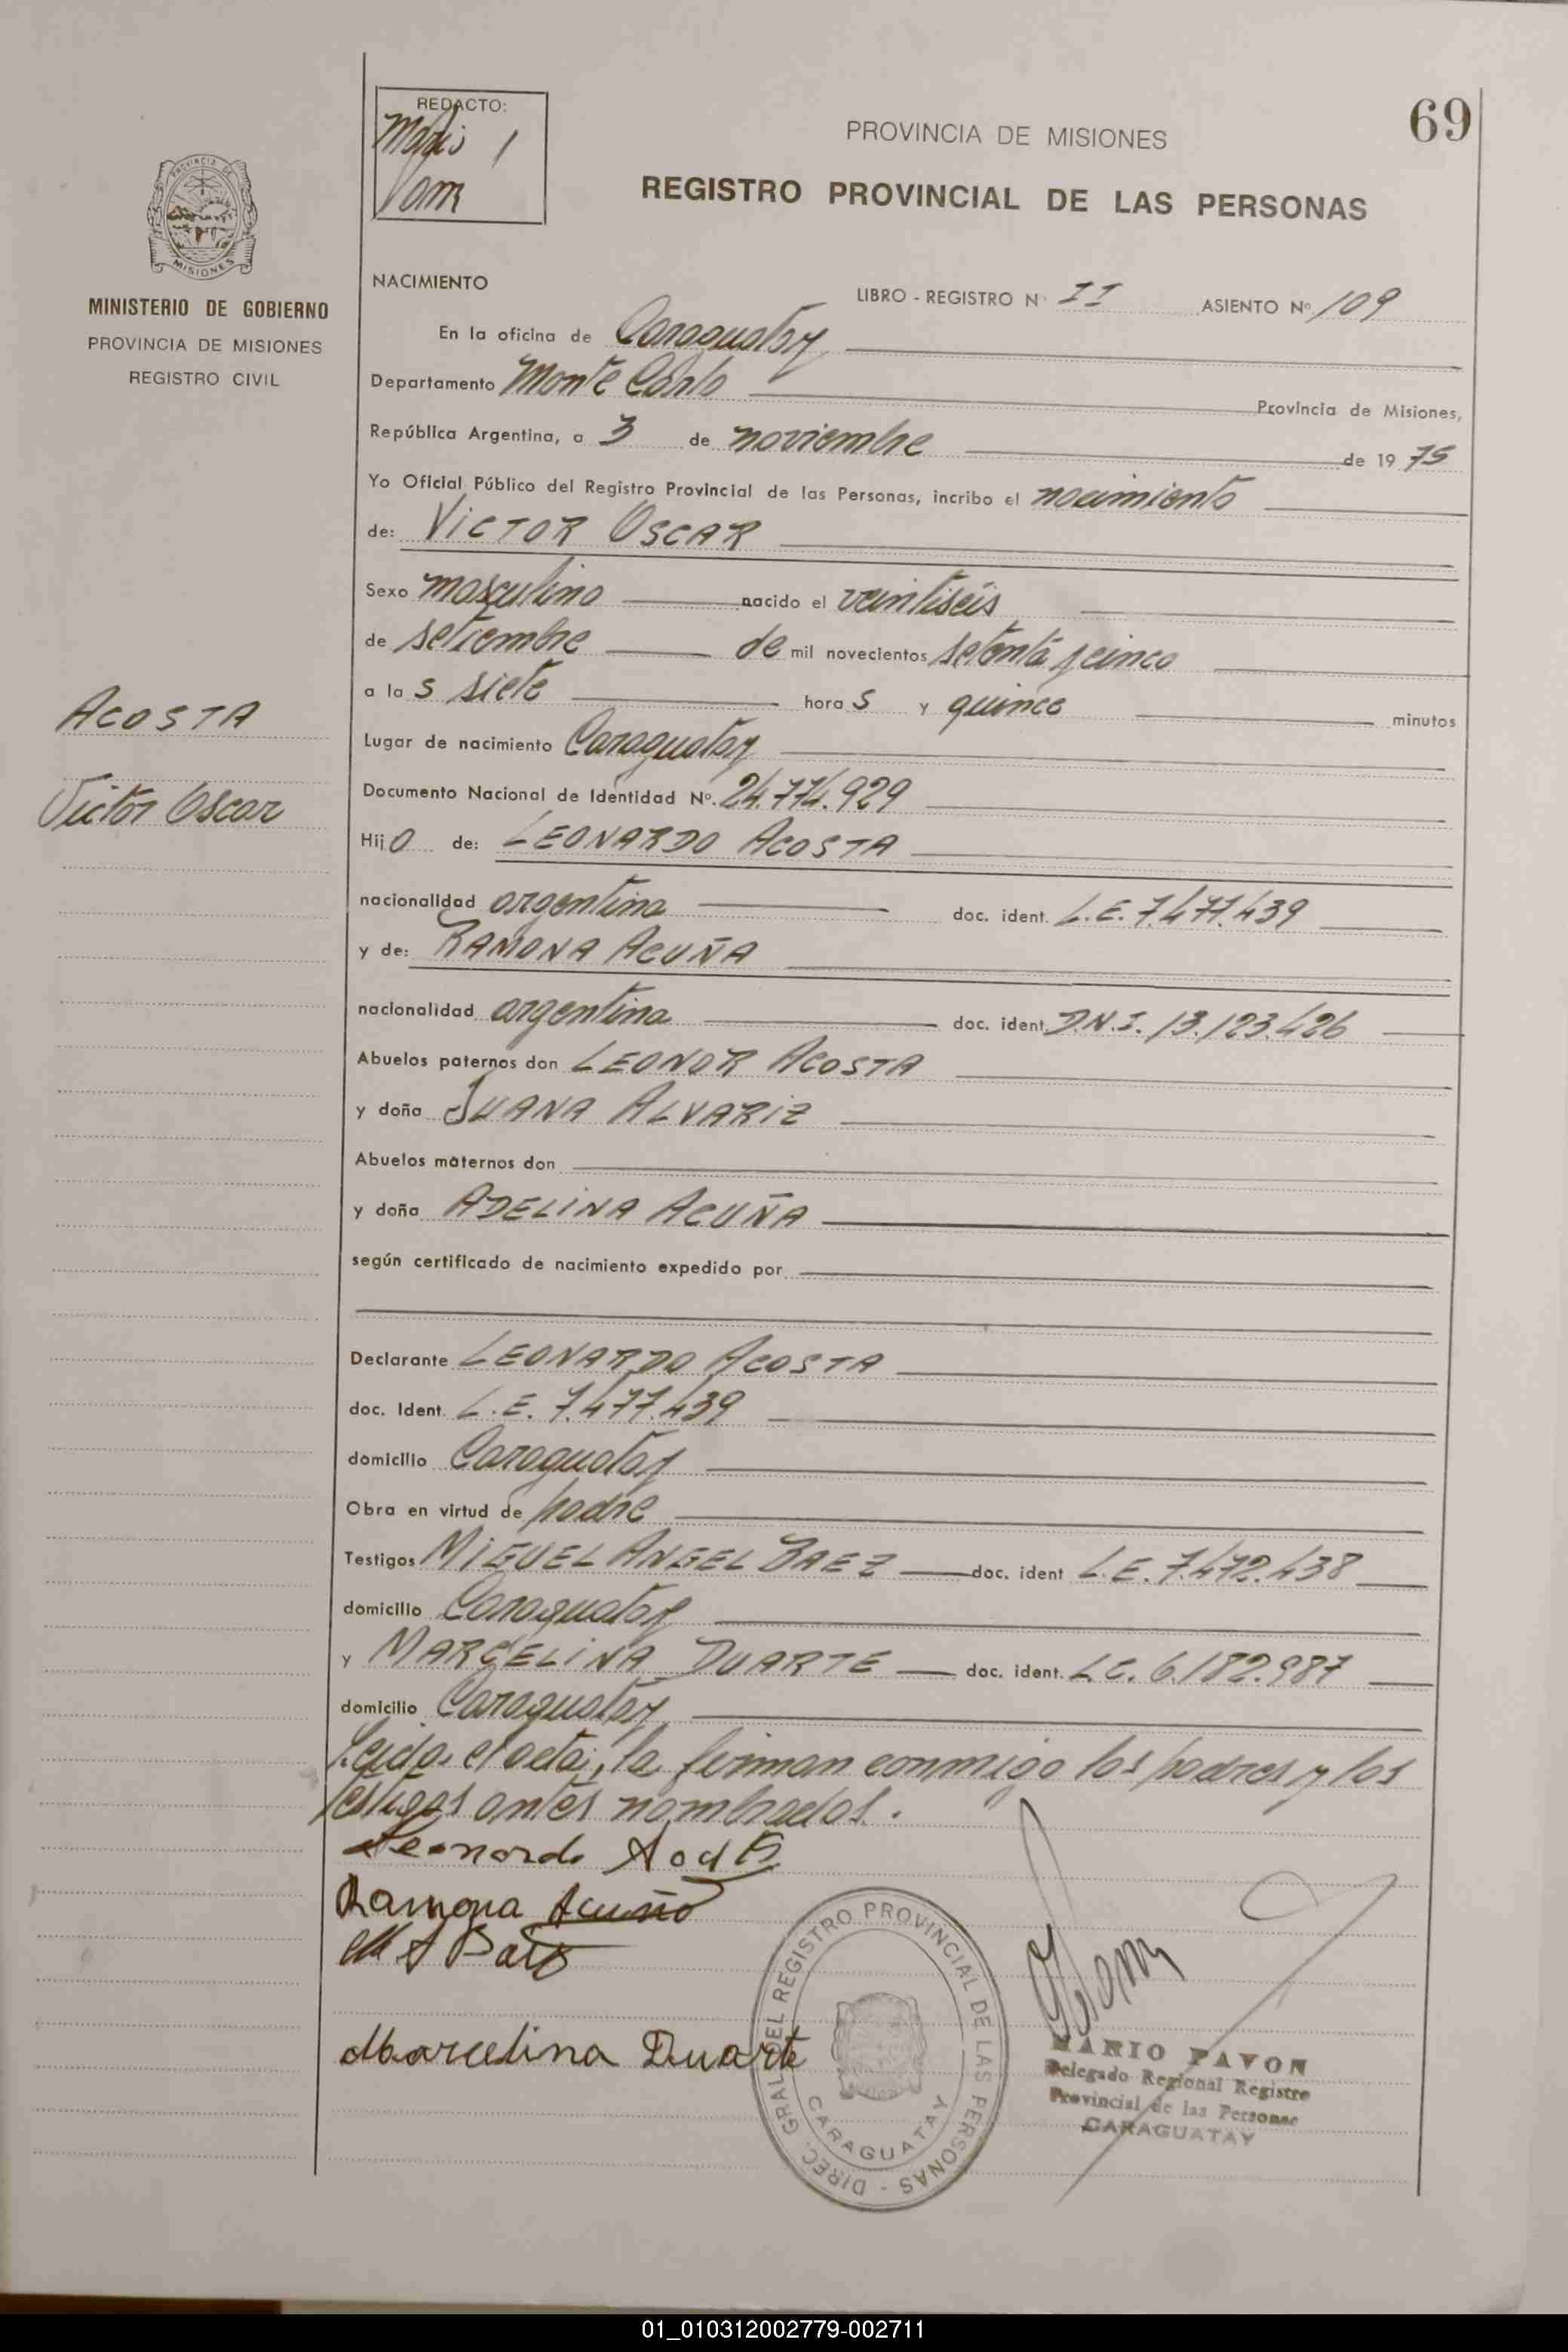 69
REDACTO:
PROVINCIA DE MISIONES
REGISTRO PROVINCIAL DE LAS PERSONAS
PROVINCIA DE
MISIONES
MINISTERIO DE GOBIERNO
PROVINCIA DE MISIONES
REGISTRO CIVIL
NACIMIENTO
LIBRO - REGISTRO Nº II ASIENTO Nº 109
En la oficina de Caraguatay
Departamento Monte Carlo Provincia de Misiones,
República Argentina, a 3 de noviembre de 1975
Yo Oficial Público del Registro Provincial de las Personas, incribo el nacimiento
de: VICTOR OSCAR
Sexo masculino nacido el veintiseis
de setiembre de mil novecientos setenta y cinco
a las siete horas y quince minutos
ACOSTA
Victor Oscar
Lugar de nacimiento Caraguatay
Documento Nacional de Identidad Nº. 24.774.929
Hijo de: LEONARDO ACOSTA
nacionalidad argentina doc. ident. L.E. 7.477.439
y de: RAMONA ACUÑA
nacionalidad argentina doc. ident. D.N.I. 13.123.426
Abuelos paternos don LEONOR ACOSTA
y doña JUANA ALVARIZ
Abuelos maternos don
y doña ADELINA ACUÑA
según certificado de nacimiento expedido por
Declarante LEONARDO ACOSTA
doc. Ident. L.E. 7.477.439
domicilio Caraguatay
Obra en virtud de padre
Testigos MIGUEL ANGEL BAEZ doc. ident L.E. 7.472.438
domicilio Caraguatay
y MARCELINA DUARTE doc. ident. L.C. 6.182.987
domicilio Caraguatay
Leida el acta, la firman conmigo los padres y los
testigos antes nombrados.
Leonardo
Ramona Acuña
M A Baez
Marcelina Duarte
DIREC. GRAL. DEL REGISTRO PROVINCIAL DE LAS PERSONAS -
CARAGUATAY
MARIO PAVON
Delegado Regional Registro
Provincial de las Personas
CARAGUATAY
01_010312002779-002711